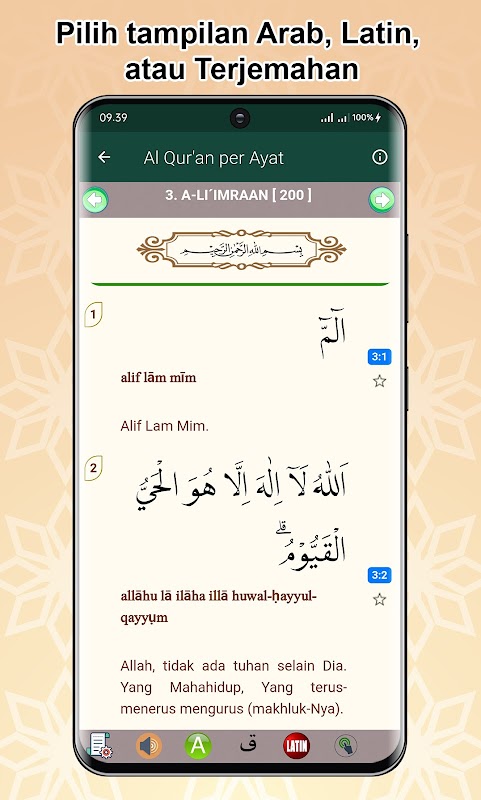 Pilih tampilan Arab, Latin,
atau Terjemahan
09.39
100%
Al Qur'an per Ayat
3. A-LI´IMRAAN [ 200 ]
بِسْمِ اللهِ الرَّحْمٰنِ الرَّحِيْمِ
1
الۤمّۤ
3:1
alif lām mīm
Alif Lam Mim.
2
اَللّٰهُ لَآ اِلٰهَ اِلَّا هُوَ الْحَيُّ
الْقَيُّوْمُۗ
3:2
allāhu lā ilāha illā huwal-ḥayyul-
qayyụm
Allah, tidak ada tuhan selain Dia.
Yang Mahahidup, Yang terus-
menerus mengurus (makhluk-Nya).
A
ق
LATIN